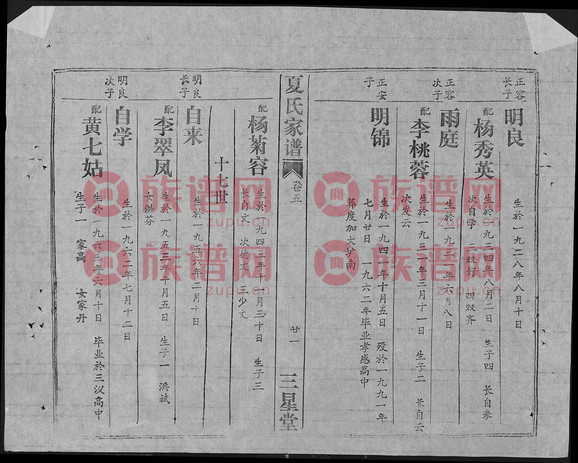 正容
长子
明良
生於一九二八年八月十日
配
杨秀英
生於一九三四年八月二日 生子四 长自来
次自学 三双行 四双齐
正容
次子
雨庭
生於一九三一年六月八日
配
李桃蓉
生於一九三二年三月十一日 生子二 长自云
次发云
正安
子
明锦
生於一九四一年十月五日 殁於一九九一年
七月廿日 一九六二年毕业孝感高中
葬度加大坟南
夏氏家谱
卷五
廿一
三星堂
配
杨菊容
生於一九四三年十一月三十日 生子三
长自文 三少文
十七世
明良
长子
自来
生於一九五六年二月十日
配
李翠凤
生於一九五三年十月五日 生子一 洪斌
女洪芬
明良
次子
自学
生於一九六二年七月十二日
配
黄七姑
生於一九六三年六月十日 毕业於三汊高中
生子一 家高 女家丹
族谱网
zupu.cn
族谱网
zupu.cn
族谱网
zupu.cn
族谱网
zupu.cn
族谱网
zupu.cn
族谱网
zupu.cn